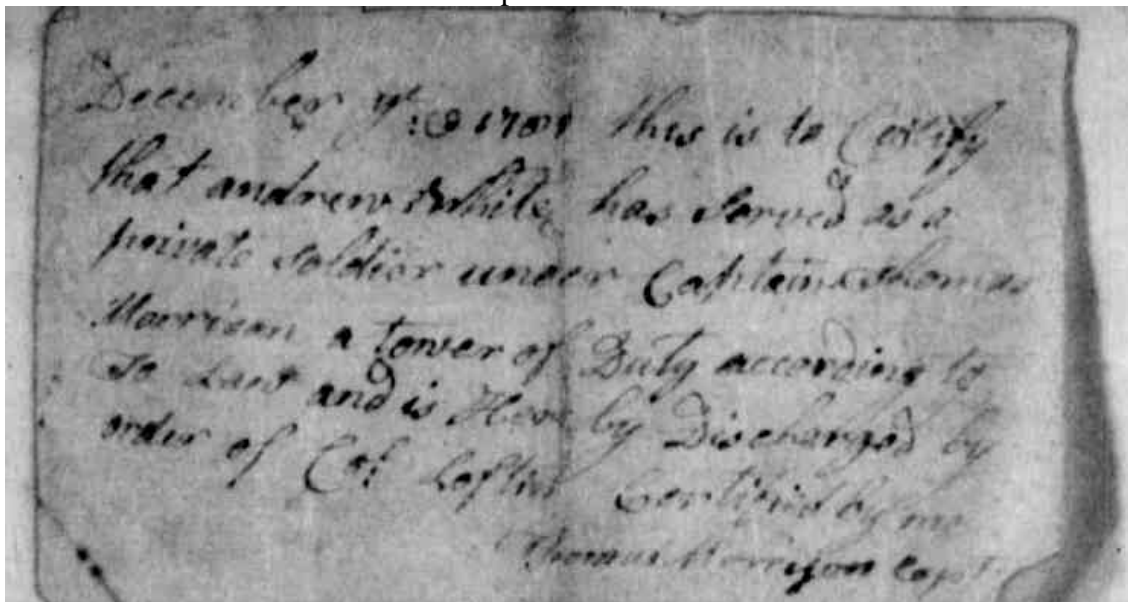 December ye 10 1781 this is to Certify
that andrew white has Served as a
private Soldier under Captain Thomas
Morrison a tower of Duty according to
to Law and is Here by Discharged by
order of Col Loftin Certified by me
Thomas Morrison Capt